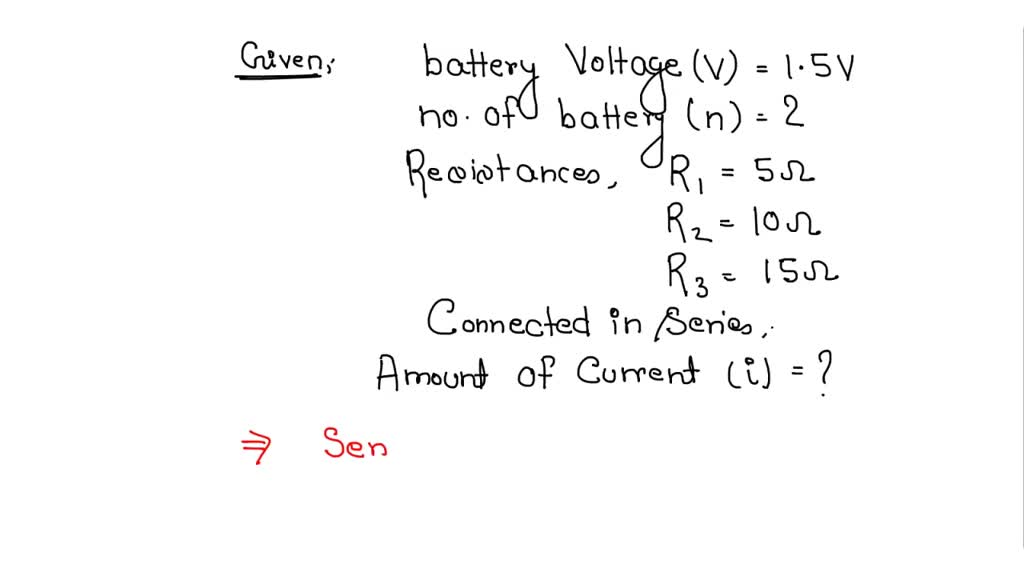 Given,
battery Voltage (V) = 1.5V
no. of battery (n) = 2
Resistances, R1 = 5Ω
R2 = 10Ω
R3 = 15Ω
Connected in Series,
Amount of Current (i) = ?
⇒ Sen